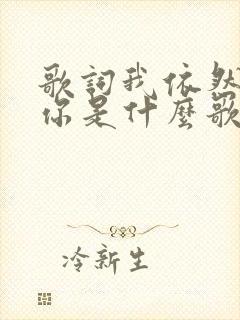 歌詞我依然
你是什麼歌
冷新生